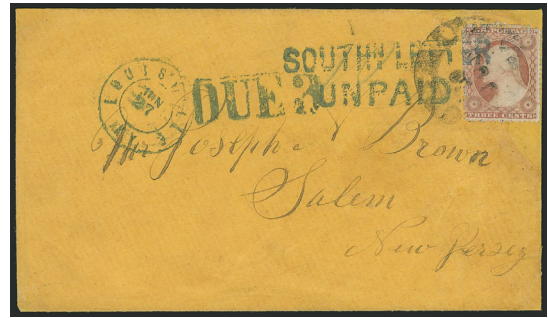 LOUISVILLE KY
JUN
27
DUE 3
SOUTHN LETTER
UNPAID
THREE CENTS
Mr Joseph Brown
Salem
New Jersey